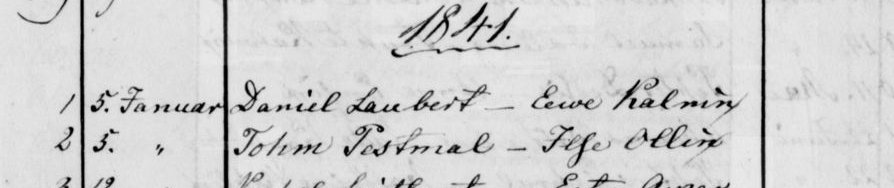 1841.
1 5. Januar Daniel Laubert — Eewe Kalnin
2 5. „ Tohm Pestmal — Ilse Ollin